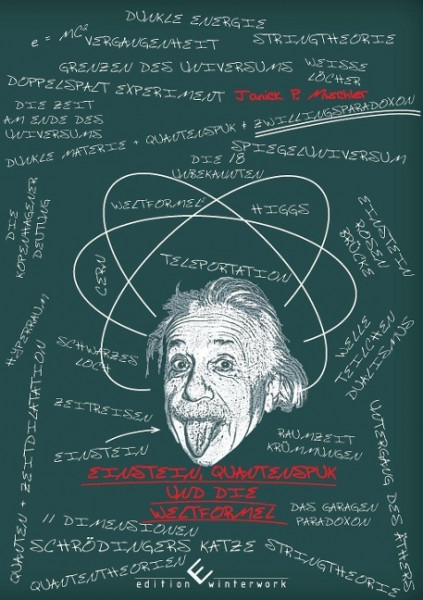 DUNKLE ENERGIE
e = MC²
VERGANGENHEIT
STRINGTHEORIE
GRENZEN DES UNIVERSUMS
WEISSE
LÖCHER
DOPPELSPALT EXPERIMENT
Janick P. Mischler
DIE ZEIT
AM ENDE DES
UNIVERSUMS
ZWILLINGSPARADOXON
DUNKLE MATERIE + QUANTENSPUK +
SPIEGELUNIVERSUM
DIE 18
UNBEKANNTEN
DIE
KOPENHAGENER
DEUTUNG
WELTFORMEL
HIGGS
EINSTEIN
ROSEN
BRÜCKE
CERN
TELEPORTATION
HYPERRAUM
SCHWARZES
LOCH
WELLE
TEILCHEN
DUALISMUS
ZEITREISEN
EINSTEIN
RAUMZEIT
KRÜMMUNGEN
QUANTEN + ZEITDILATATION
UNTERGANG DES ÄTHERS
EINSTEIN, QUANTENSPUK
UND DIE
WELTFORMEL
DAS GARAGEN
PARADOXON
11 DIMENSIONEN
SCHRÖDINGERS KATZE
STRINGTHEORIE
QUANTENTHEORIEN
edition winterwork